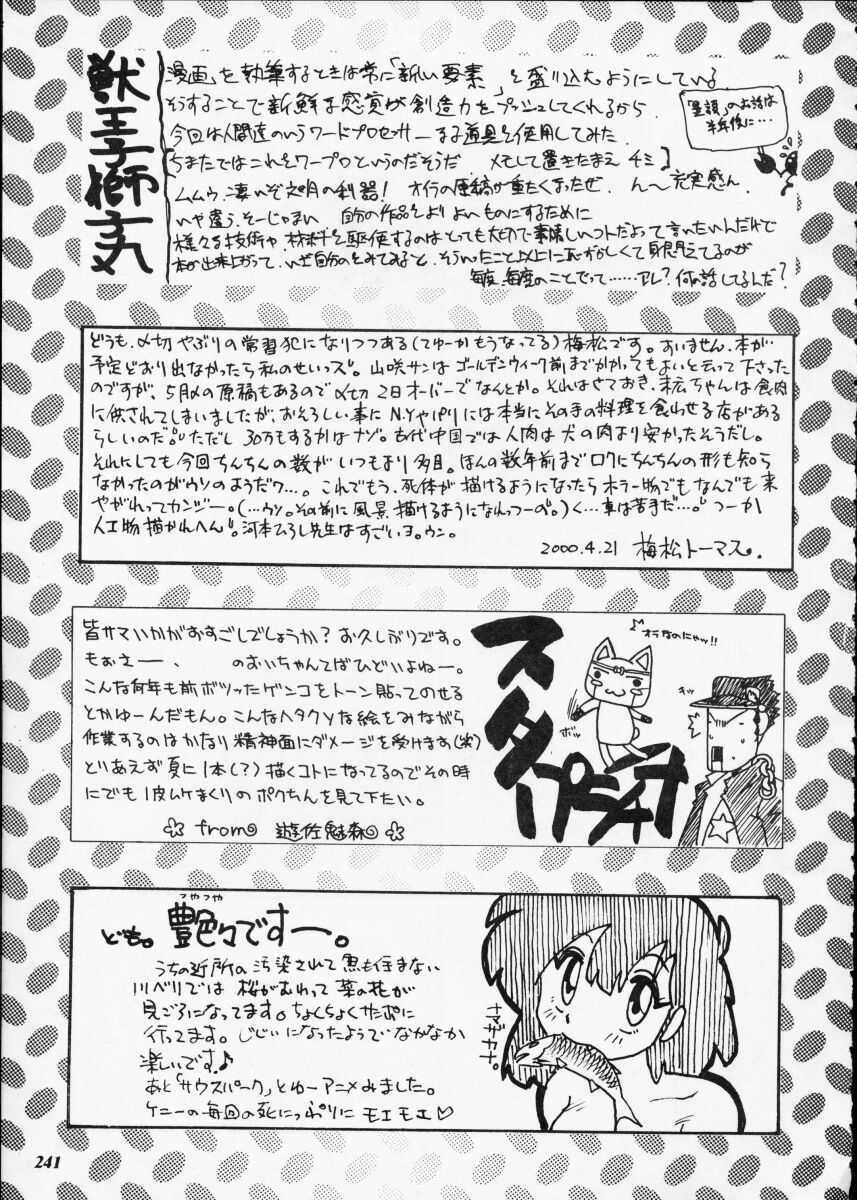 獣王子獅子丸
「漫画」を執筆するときは常に「新しい要素」を盛り込むようにしている
そうすることで新鮮な感覚が創造力をプッシュしてくれるから.
今回は人間達のいうワードプロセッサーなる道具を使用してみた.
[ちまたではこれをワープロというのだそうだ メモして置きたまえ チミ]
ムムウ、凄いぞ文明の利器! オイラの原稿が重たくなったぜ. ん〜充実感ん.
いや違う、そーじゃない 自分の作品をよりよいものにするために
様々な技術や材料を駆使するのはとっても大切で素晴しいコトだよって言いたいんだけど
本が出来上がって、いざ自分のをみてみると、そういったこと以上に恥ずかしくて身悶えてるのが
毎度、毎度のことでって……アレ?何の話してるんだ?
のお話は
半年後に…
どうも、〆切やぶりの常習犯になりつつある(てゆーかもうなってる)梅松です。すいません、本が…
予定どおり出なかったら私のせいっス。山咲サンはゴールデンウィーク前までかかってもよいと云って下さった
のですが、5月〆の原稿もあるので〆切2日オーバーでなんとか。それはさておき、ちゃんは食肉
に供されてしまいましたが、おそろしい事にN.Yやパリには本当にその手の料理を食わせる店がある
らしいのだ。ただし30万もするかはナゾ。古代中国では人肉は犬の肉より安かったそうだし。
それにしても今回ちんちんの数がいつもより多目。ほんの数年前までロクにちんちんの形も知ら
なかったのがウソのようだワ…。これでもう、死体が描けるようになったらホラー物でもなんでも来
やがれってカンジー。(…ウソ。その前に風景描けるようになれっつーの。)く…車は苦手だ…。つーか
人工物描かれへん。河本ひろし先生はすごいヨ。ウン。
2000.4.21 梅松トーマス.
皆サマいかがおすごしでしょうか?お久しぶりです。
もぉえー、 のおいちゃんてばひどいよねー。
こんな何年も前ボツったゲンコをトーン貼ってのせる
とかゆーんだもん。こんなヘタクソな絵をみながら
作業するのはかなり精神面にダメージを受けます(笑)
とりあえず夏に1本(?)描くコトになってるのでその時
にでも1皮ムケまくりのボクちんを見て下たい。
☆from 遊佐魅森 ☆
スタープラチナ
♪オラなのにゃッ!!
ボッ
つやつや
ども。艶々ですー。
うちの近所の汚染されて魚も住まない
川べりでは桜がおわって菜の花が
見ごろになってます。ちょくちょくサンポに
行ってます。じじいになったようでなかなか
楽しいです♪
あと「サウスパーク」とゆーアニメみました。
ケニーの毎回の死にっぷりにモエモエ♡
ナマザカナ。
241